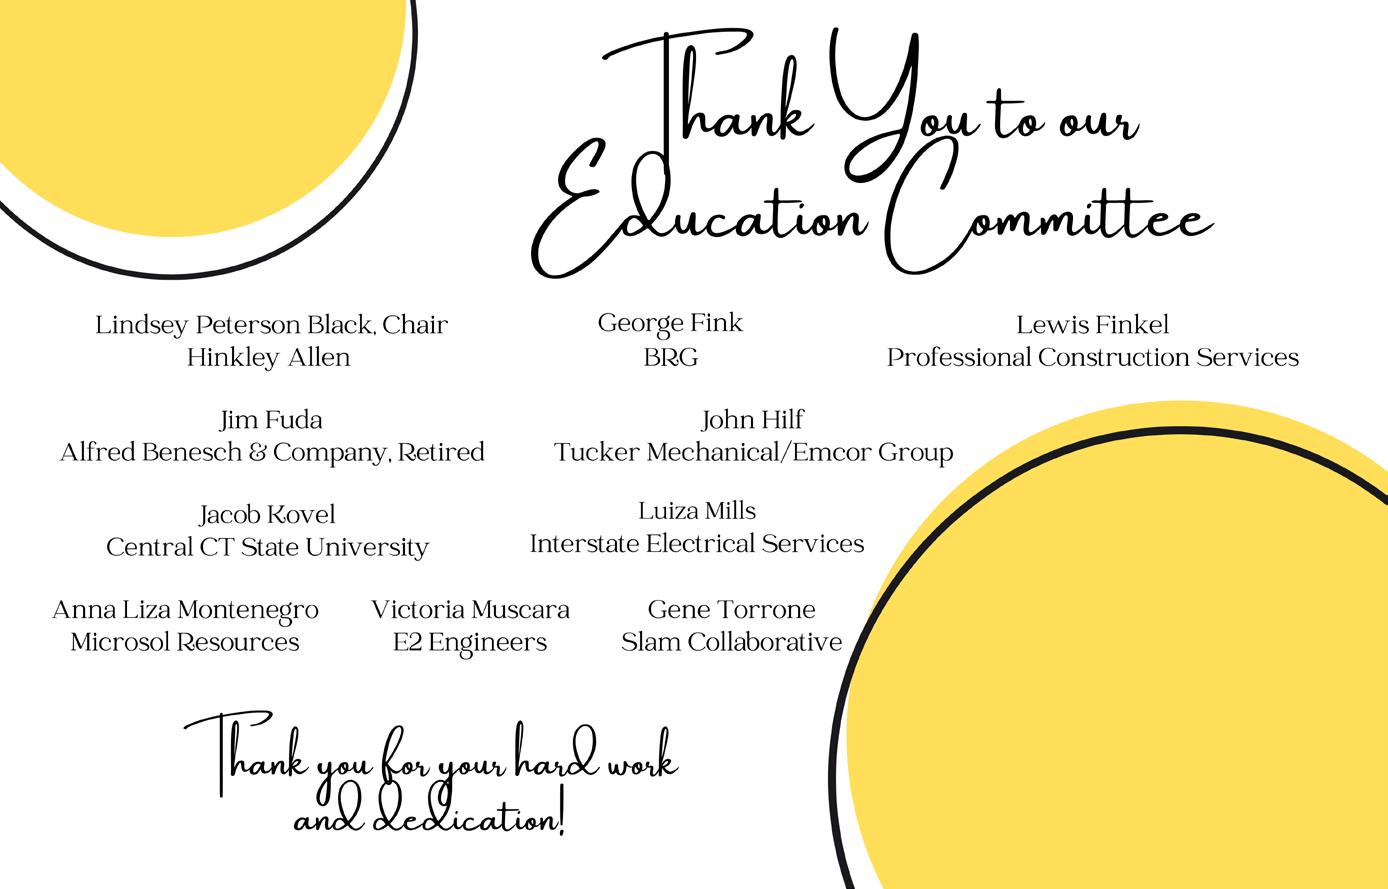 Thank You to our
Education Committee
Lindsey Peterson Black, Chair
Hinkley Allen
George Fink
BRG
Lewis Finkel
Professional Construction Services
Jim Fuda
Alfred Benesch & Company, Retired
John Hilf
Tucker Mechanical/Emcor Group
Jacob Kovel
Central CT State University
Luiza Mills
Interstate Electrical Services
Anna Liza Montenegro
Microsol Resources
Victoria Muscara
E2 Engineers
Gene Torrone
Slam Collaborative
Thank you for your hard work
and dedication!